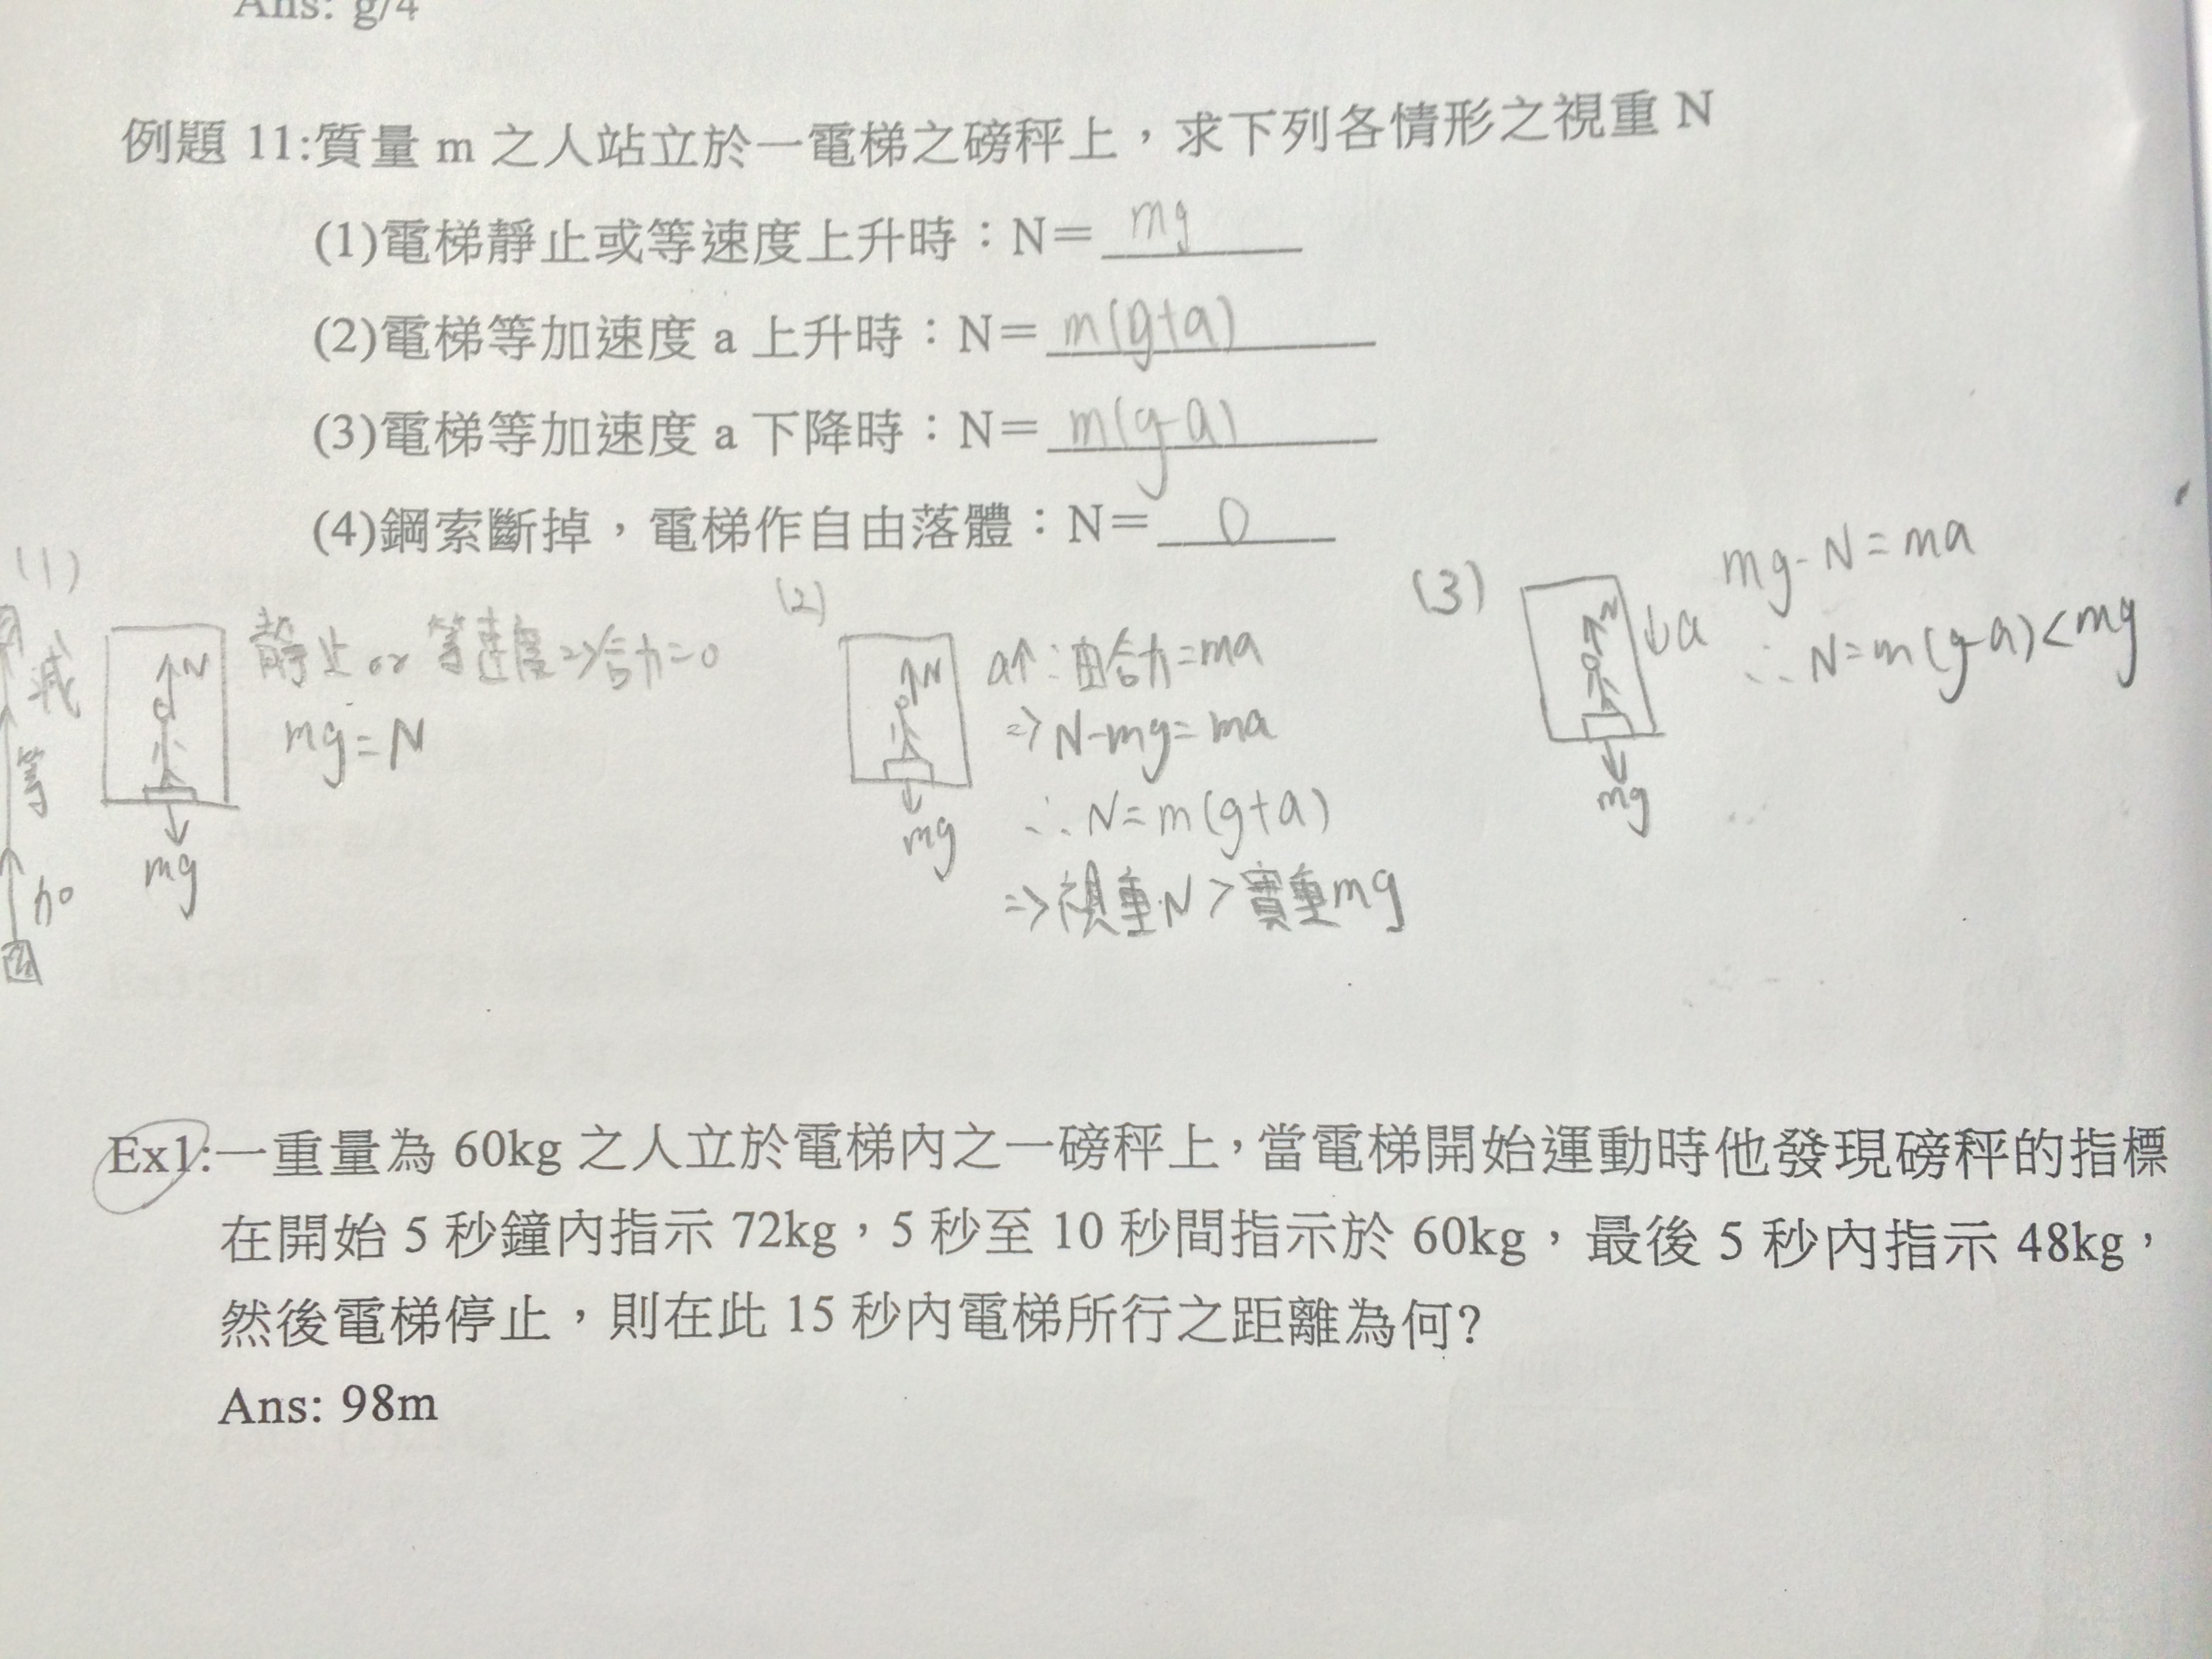 Ans: g/4
例題 11:質量 m 之人站立於一電梯之磅秤上，求下列各情形之視重 N
(1)電梯靜止或等速度上升時：N＝ mg
(2)電梯等加速度 a 上升時：N＝ m(g+a)
(3)電梯等加速度 a 下降時：N＝ m(g-a)
(4)鋼索斷掉，電梯作自由落體：N＝ 0
(1)
減
等
加
N
mg
靜止 or 等速度⇒合力=0
mg=N
(2)
N
mg
a↑:由合力=ma
⇒N-mg=ma
∴N=m(g+a)
⇒視重N>實重mg
(3)
N
↓a
mg
mg-N=ma
∴N=m(g-a)<mg
Ex1:一重量為 60kg 之人立於電梯內之一磅秤上，當電梯開始運動時他發現磅秤的指標
在開始 5 秒鐘內指示 72kg，5 秒至 10 秒間指示於 60kg，最後 5 秒內指示 48kg，
然後電梯停止，則在此 15 秒內電梯所行之距離為何?
Ans: 98m